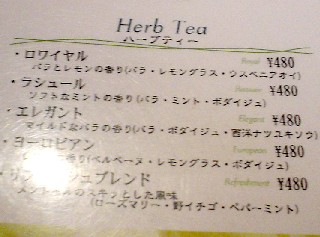 Herb Tea
ハーブティー
・ロワイヤル Royal ¥480
バラとレモンの香り(バラ・レモングラス・ウスベニアオイ)
・ラシュール ¥480
ソフトなミントの香り(バラ・ミント・ボダイジュ)
・エレガント Elegant ¥480
マイルドなバラの香り(バラ・ボダイジュ・西洋ナツユキソウ)
・ヨーロピアン European ¥480
香り(ベルベーヌ・レモングラス・ボダイジュ)
・リフレッシュブレンド Refreshment ¥480
メントールのスキッとした風味
(ローズマリー・野イチゴ・ペパーミント)